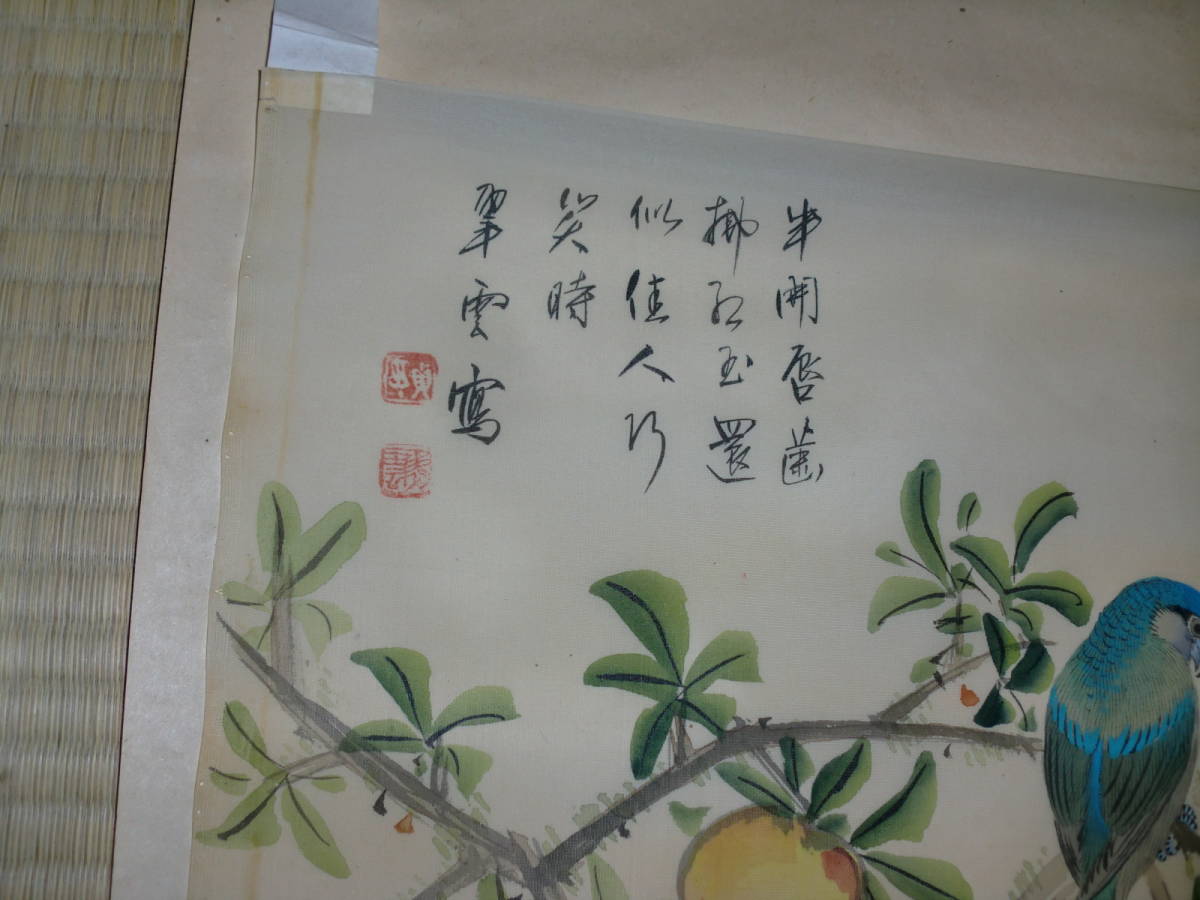 半開唇齒
排紅玉還
似佳人巧
笑時
翠雲寫